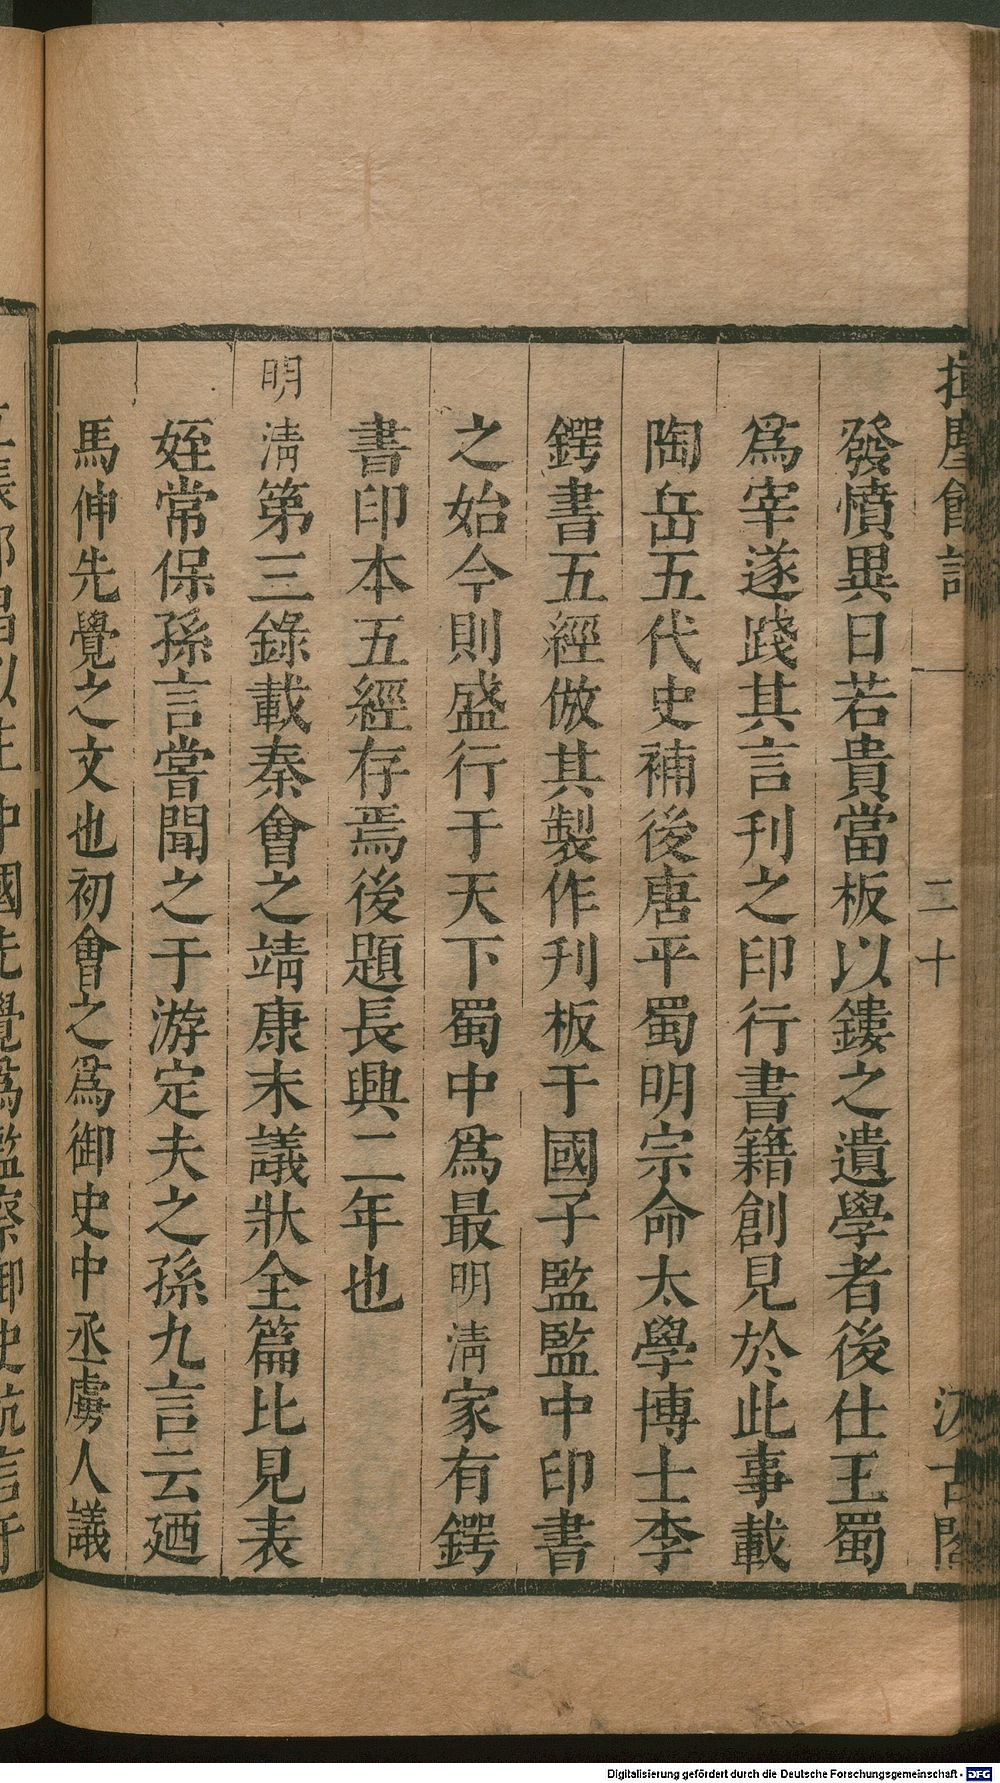 揮麈餘話 一 二十 汲古閣
發憤異日若貴當板以鏤之遺學者後仕王蜀
爲宰遂踐其言刊之印行書籍創見於此事載
陶岳五代史補後唐平蜀明宗命太學博士李
鍔書五經倣其製作刊板于國子監監中印書
之始今則盛行于天下蜀中爲最明淸家有鍔
書印本五經存焉後題長興二年也
明淸第三錄載秦會之靖康末議狀全篇比見表
姪常保孫言嘗聞之于游定夫之孫九言云廼
馬伸先覺之文也初會之爲御史中丞虜人議
中國先覺爲監察御史抗言于
Digitalisierung gefördert durch die Deutsche Forschungsgemeinschaft - DFG